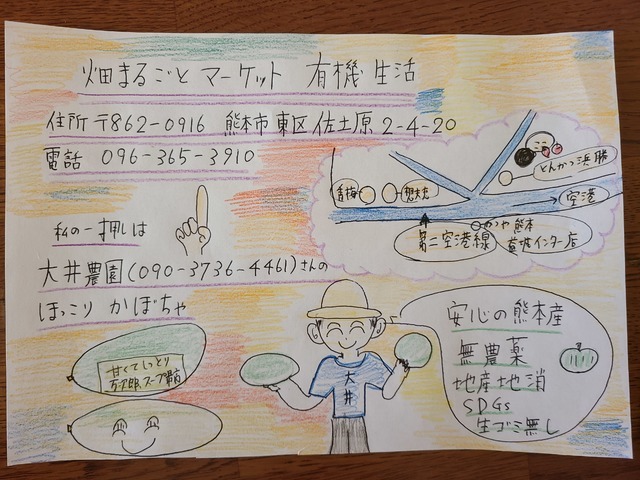 畑まるごとマーケット 有機生活
住所 〒862-0916 熊本市東区佐土原2-4-20
電話 096-365-3910
ここ
とんかつ浜勝
青梅
想夫恋
空港
第二空港線
かつや熊本
益城インター店
私の一押しは
大井農園(090-3736-4461)さんの
ほっこり かぼちゃ
甘くてしっとり
万次郎、スープ最高
大井
安心の熊本産
無農薬
地産地消
SDGs
生ゴミ無し